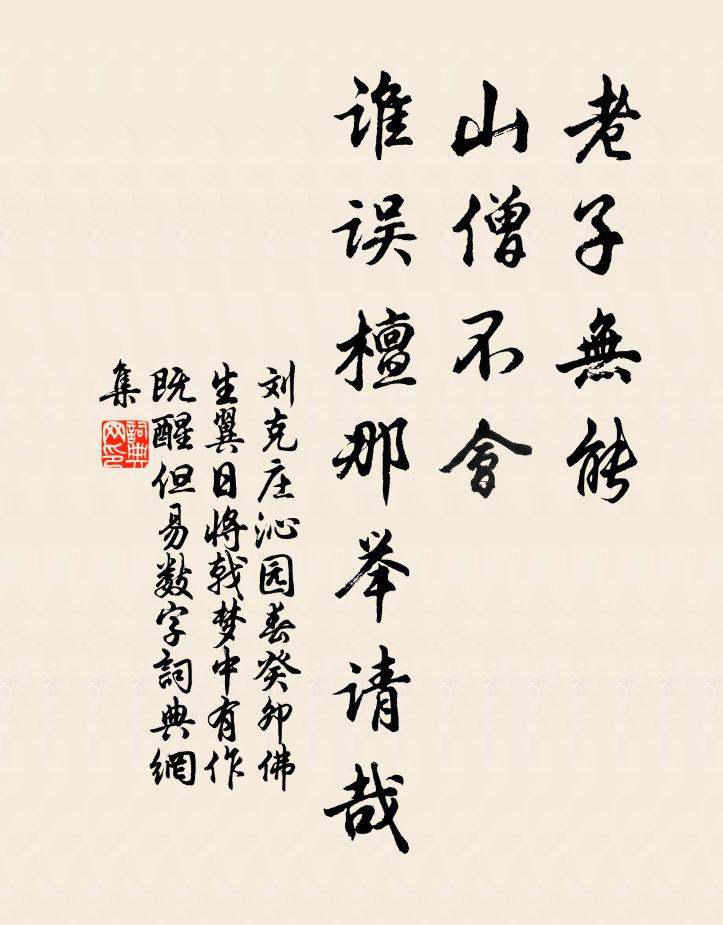 老子無能
山僧不會
谁误檀那举请哉
刘克庄沁园春癸卯佛
生翼日将戟梦中有作
既醒但易数字詞典網
集
詞典
网印